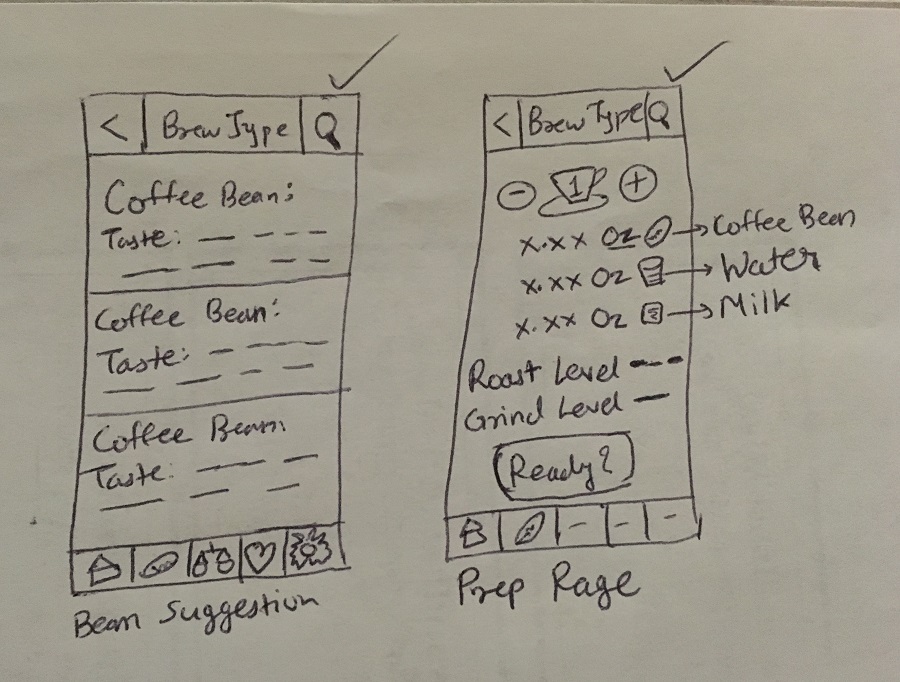 <
Brew Type
Coffee Bean:
Taste:
Coffee Bean:
Taste:
Coffee Bean:
Taste:
Bean Suggestion
<
Brew Type
- 1 +
x.xx Oz → Coffee Bean
x.xx Oz → Water
x.xx Oz → Milk
Roast Level
Grind Level
Ready?
Prep Page